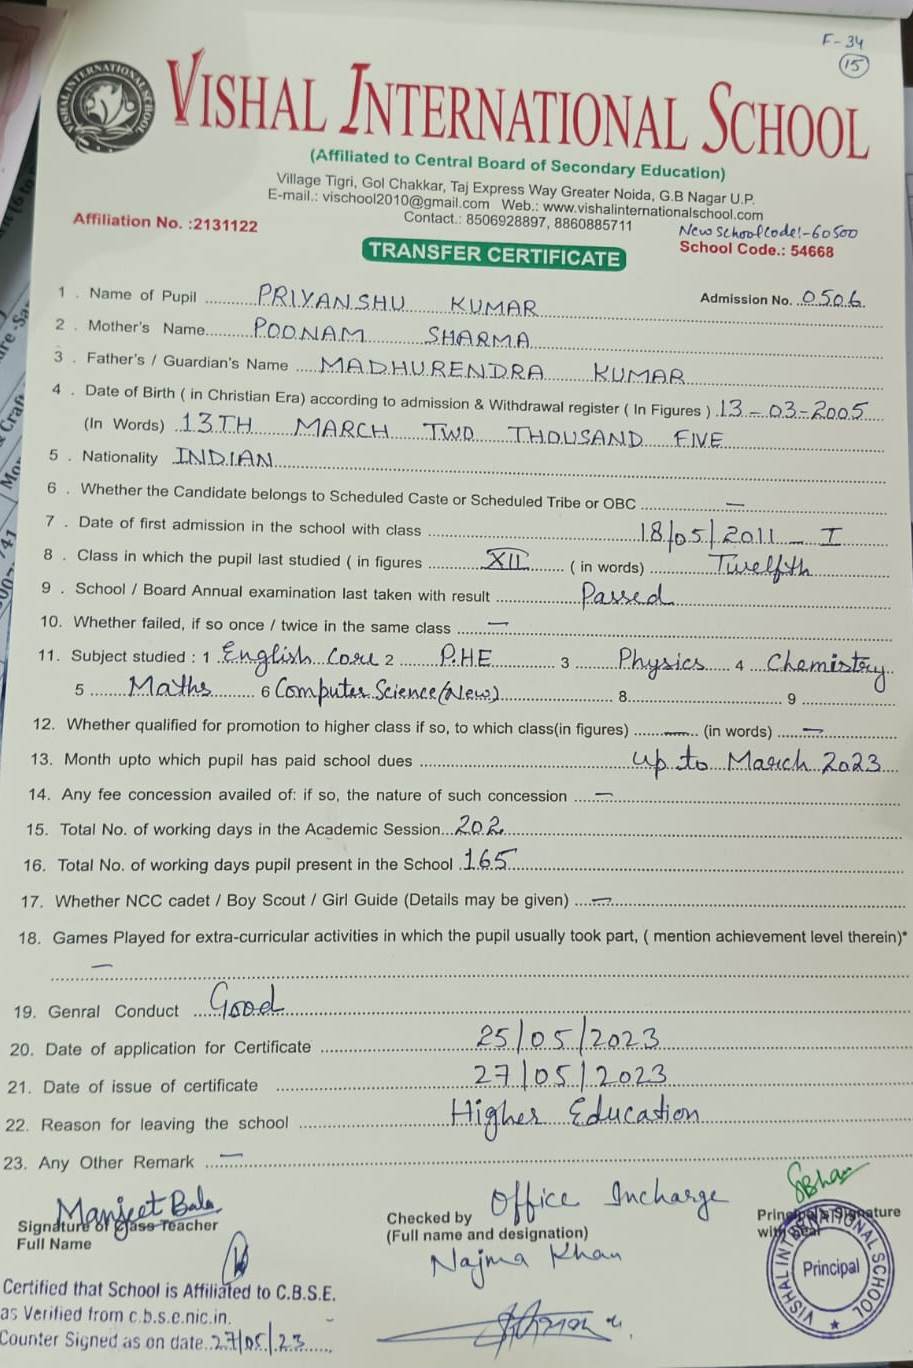 F-34
15
VISHAL INTERNATIONAL SCHOOL
VISHAL INTERNATIONAL SCHOOL
(Affiliated to Central Board of Secondary Education)
Village Tigri, Gol Chakkar, Taj Express Way Greater Noida, G.B Nagar U.P.
E-mail.: vischool2010@gmail.com Web.: www.vishalinternationalschool.com
Contact.: 8506928897, 8860885711
Affiliation No. :2131122
New School Code:-60500
School Code.: 54668
TRANSFER CERTIFICATE
1 . Name of Pupil PRIYANSHU KUMAR Admission No. 0506
2 . Mother's Name POONAM SHARMA
3 . Father's / Guardian's Name MADHURENDRA KUMAR
4 . Date of Birth ( in Christian Era) according to admission & Withdrawal register ( In Figures ) 13-03-2005
(In Words) 13TH MARCH TWO THOUSAND FIVE
5 . Nationality INDIAN
6 . Whether the Candidate belongs to Scheduled Caste or Scheduled Tribe or OBC —
7 . Date of first admission in the school with class 18/05/2011 - I
8 . Class in which the pupil last studied ( in figures XII ( in words) Twelfth
9 . School / Board Annual examination last taken with result Passed
10. Whether failed, if so once / twice in the same class —
11. Subject studied : 1 English Core 2 P.HE 3 Physics 4 Chemistry
5 Maths 6 Computer Science(New) 8 9
12. Whether qualified for promotion to higher class if so, to which class(in figures) — (in words) —
13. Month upto which pupil has paid school dues up to March 2023
14. Any fee concession availed of: if so, the nature of such concession —
15. Total No. of working days in the Academic Session 202
16. Total No. of working days pupil present in the School 165
17. Whether NCC cadet / Boy Scout / Girl Guide (Details may be given) —
18. Games Played for extra-curricular activities in which the pupil usually took part, ( mention achievement level therein)*
—
19. Genral Conduct Good
20. Date of application for Certificate 25/05/2023
21. Date of issue of certificate 27/05/2023
22. Reason for leaving the school Higher Education
23. Any Other Remark —
Manjeet Bala
Signature of Class Teacher
Full Name
Checked by Office Incharge
(Full name and designation)
Najma Khan
Principal's Signature
with Seal
VISHAL INTERNATIONAL SCHOOL
Principal
Certified that School is Affiliated to C.B.S.E.
as Verified from c.b.s.e.nic.in.
Counter Signed as on date 27/05/23